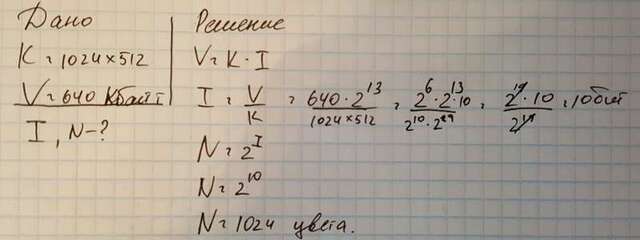 Дано
K = 1024×512
V = 640 Кбайт
I, N - ?
Решение
V = K · I
I = V/K = 640 · 2^13 / 1024×512 = 2^6 · 2^13 · 10 / 2^10 · 2^9 = 2^19 · 10 / 2^19 = 10бит
N = 2^I
N = 2^10
N = 1024 цвета.